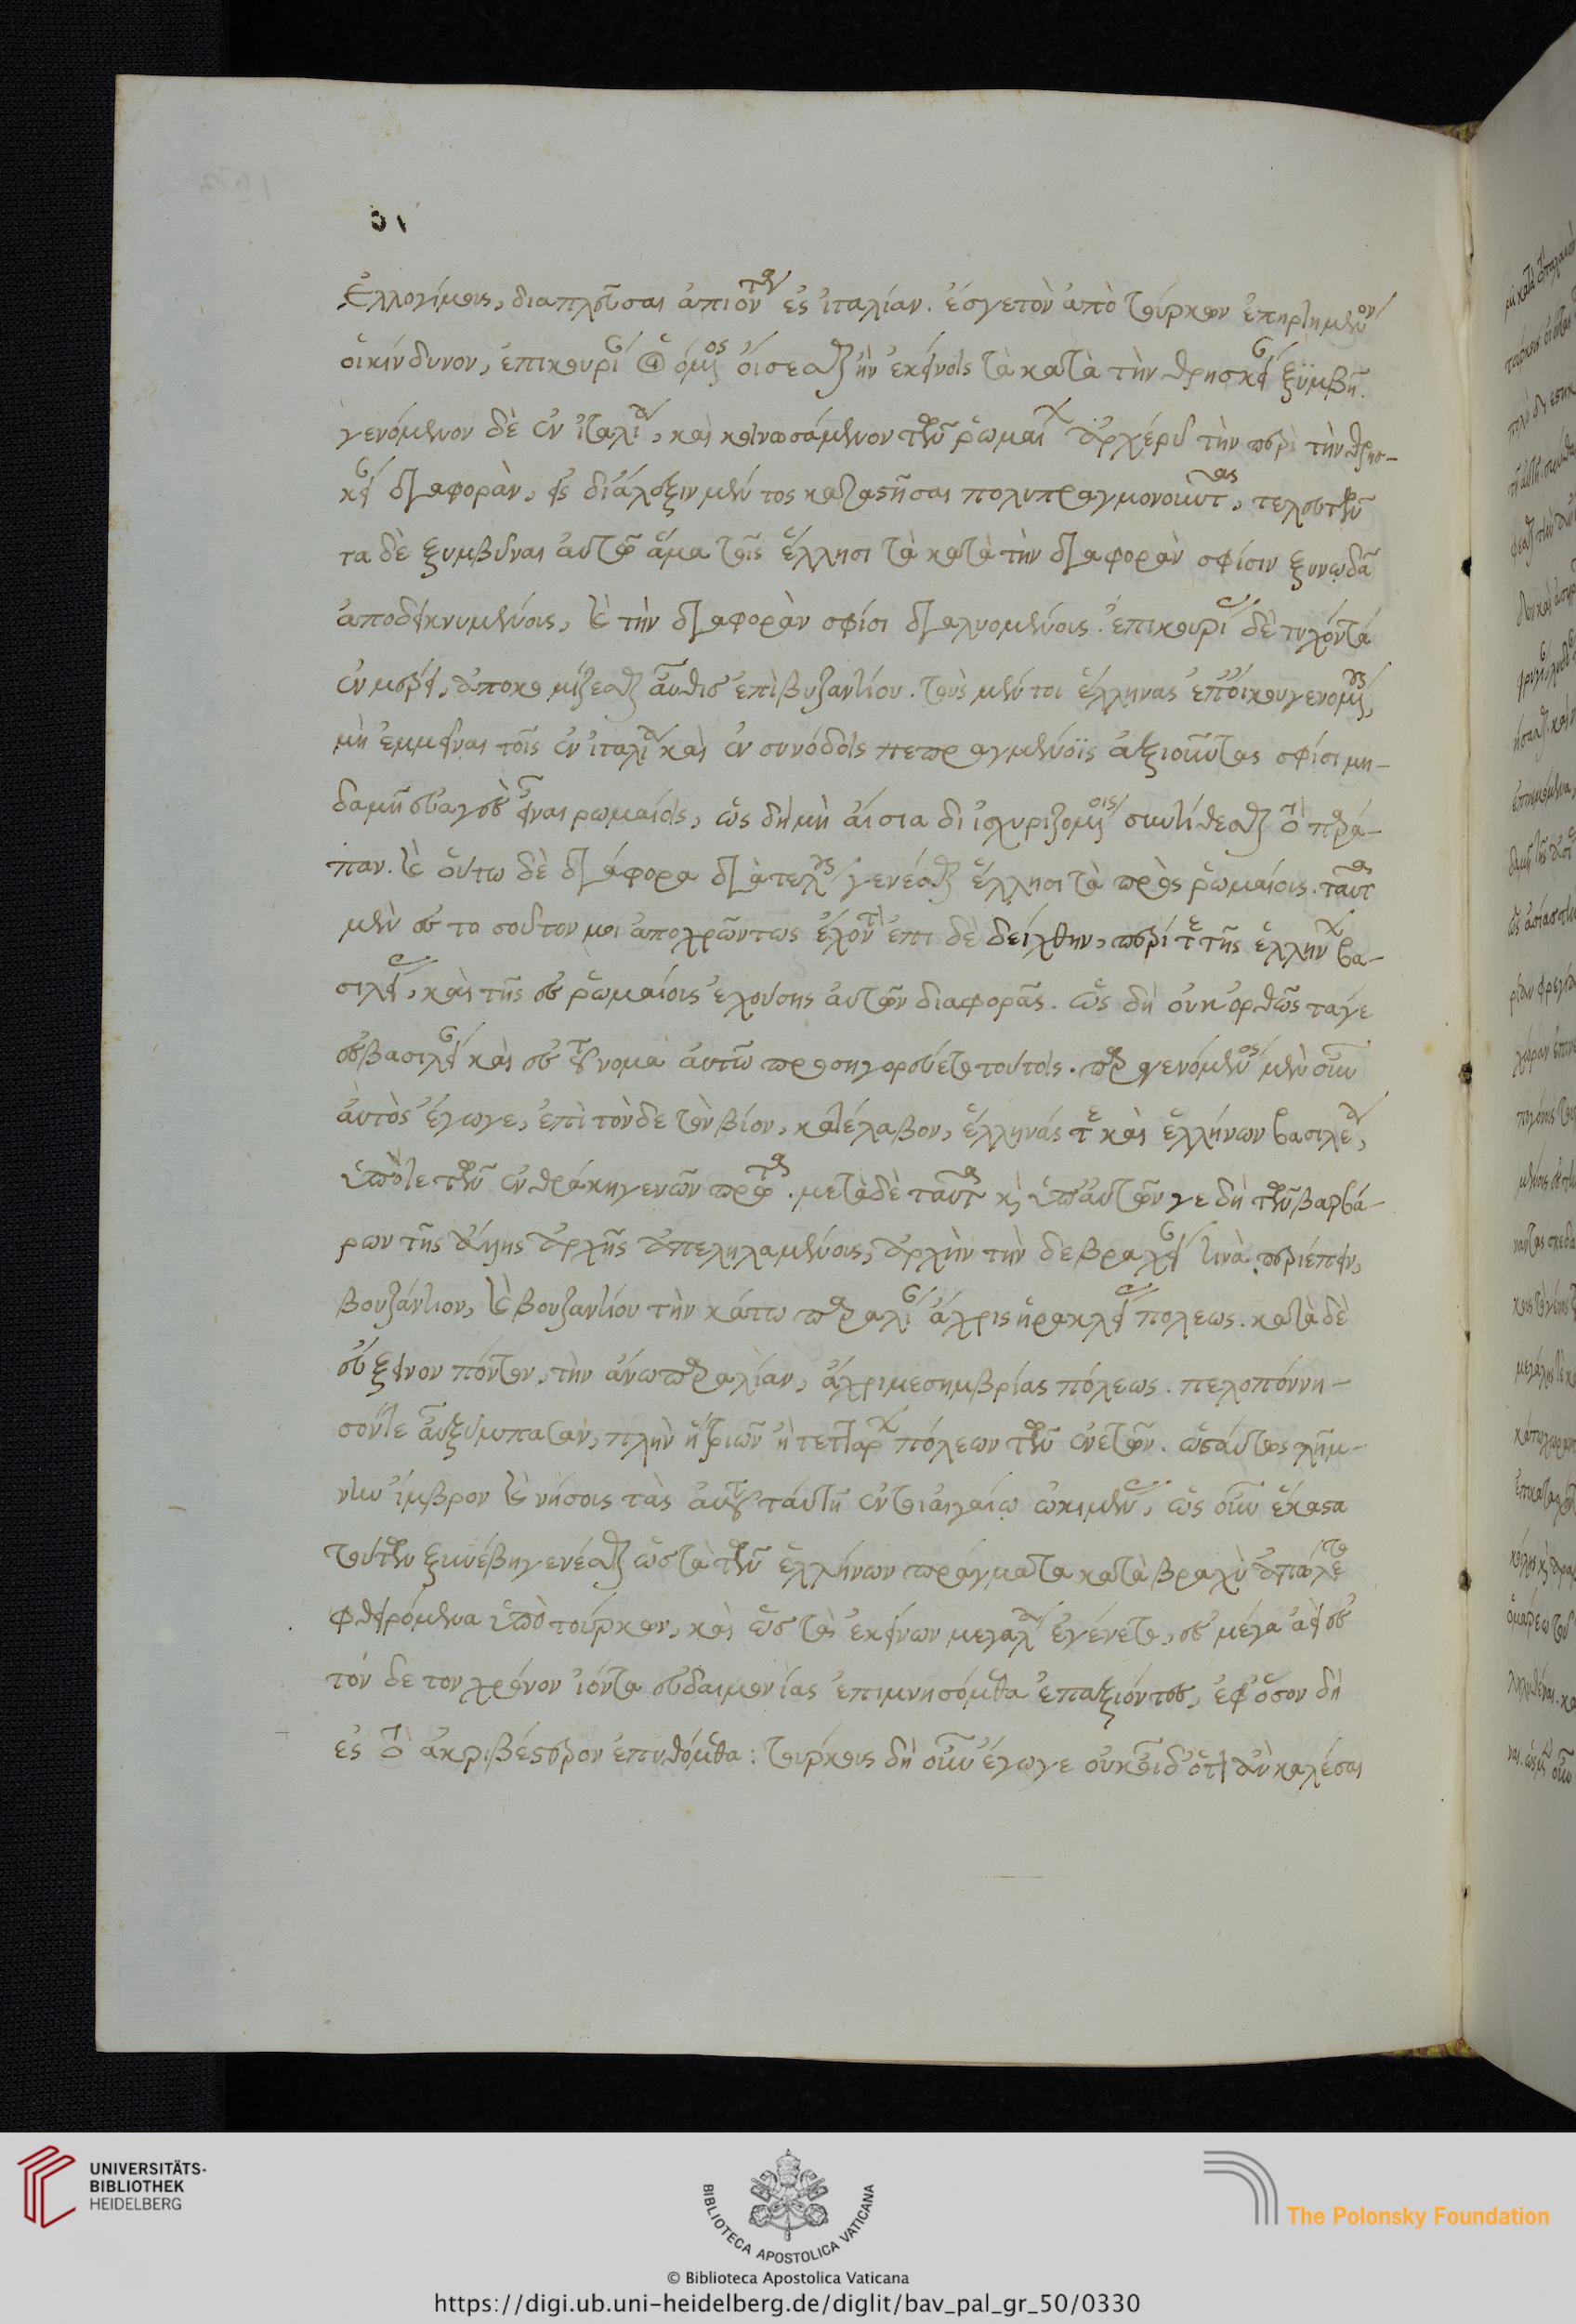 ἐλλογίμοις, διαπλεῦσαι ἀπιόντα ἐς ἰταλίαν. ἔς γε τὸν ἀπὸ τούρκων ἐπηρτημένον
οἱ κίνδυνον, ἐπικουρίαν οἰόμενος οἴσεσθαι ἢν ἐκείνοις τὰ κατὰ τὴν θρησκείαν ξυμβῆ.
γενόμενον δὲ ἐν ἰταλία, καὶ κοινωσάμενον τῶν ῥωμαίων ἀρχιερεῖ τὴν περὶ τὴν θρησ-
κείαν διαφορὰν, εἰς διάλεξιν μέν τος καταστῆσαι πολυπραγμονοῦντας, τελευτῶν
τα δὲ ξυμβῆναι αὐτῶ ἅμα τοῖς ἕλλησι τὰ κατὰ τὴν διαφορὰν σφίσιν ξυνωδὰ
ἀποδεικνυμένοις, καὶ τὴν διαφορὰν σφίσι διαλυομένοις. ἐπικουρίας δὲ τυχόντα
ἐν μέρει, ἀποκομίζεσθαι αὖθις ἐπὶ βυζαντίου. τοὺς μέντοι ἕλληνας ἐπ' οἴκου γενομένους,
μὴ ἐμμεῖναι τοῖς ἐν ἰταλία καὶ ἐν συνόδοις πεπραγμένοις ἀξιοῦντας σφίσι μη-
δαμῆ εὐαγὲς εἶναι ῥωμαίοις, ὡς δὴ μὴ αἴσια διϊσχυριζομένοις συντίθεσθαι τὸ παρά-
παν. καὶ οὕτω δὲ διάφορα διὰ τέλους γενέσθαι ἕλλησι τὰ πρὸς ῥωμαίοις. ταῦτα
μὲν ἐς τοσοῦτόν μοι ἀποχρῶντως ἔχοντα ἐπιδεδείχθην, περί τε τῆς ἑλλήνων βα-
σιλείας, καὶ τῆς ἐς ῥωμαίοις ἐχούσης αὐτῶν διαφορᾶς. ὡς δὴ οὐκ ὀρθῶς τά γε
ἐς βασιλείαν καὶ ἐς τοὔνομα αὐτῶ προσηγορεύετο τούτοις. παραγενόμενος μὲν οὖν
αὐτὸς ἔγωγε, ἐπὶ τόνδε τὸν βίον, κατέλαβον, ἕλληνάς τε καὶ ἑλλήνων βασιλέα,
ὑπό τε τῶν ἐν θράκη γενῶν πρῶτα. μετὰ δὲ ταῦτα καὶ ὑπ' αὐτῶν γε δὴ τῶν βαρβά-
ρων τῆς ἄλλης ἀρχῆς ἀπεληλαμένοις, ἀρχὴν τὴν δε βραχεῖάν τινὰ περιέπειν,
βουζάντιον, καὶ βουζαντίου τὴν κάτω παραλίαν ἄχρις ἡρακλείας πόλεως. κατὰ δὲ
εὔξεινον πόντον, τὴν ἄνω παραλίαν, ἄχρι μεσημβρίας πόλεως. πελοπόννη-
σόν τε αὖ ξύμπασαν, πλὴν ἢ τριῶν ἢ τεττάρων πόλεων τῶν ἐνετῶν. ὡσαύτως λῆμ-
νον ἴμβρον καὶ νήσοις τὰς αὐτοῦ ταύτη ἐν τῶ αἰγαίω ὠκημένας, ὡς οὖν ἕκαστα
τούτων ξυνέβη γενέσθαι ὡς τὰ τῶν ἑλλήνων πράγματα κατὰ βραχὺ ἀπώλετο
φθειρόμενα ὑπὸ τούρκων, καὶ ὡς τὰ ἐκείνων μεγάλα ἐγένετο, ἐς μέγα ἀεὶ ἐς
τόν δε τον χρόνον ἰόντα εὐδαιμονίας ἐπιμνησόμεθα ἐπεξιόντες, ἐφ' ὅσον δὴ
ἐς τὸ ἀκριβέστερον ἐπυθόμεθα: τούρκοις δὴ οὖν ἔγωγε οὐκ οἶδ' ὅτι ἂν καλέσαι
UNIVERSITÄTS-
BIBLIOTHEK
HEIDELBERG
BIBLIOTECA APOSTOLICA VATICANA
The Polonsky Foundation
© Biblioteca Apostolica Vaticana
https://digi.ub.uni-heidelberg.de/diglit/bav_pal_gr_50/0330